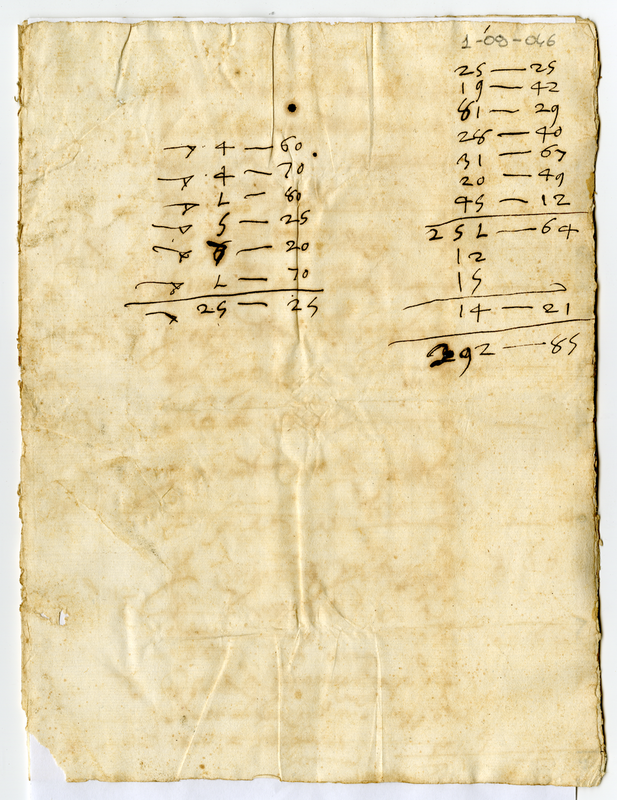 1-09-046
4 — 60
4 — 70
L — 80
5 — 25
6 — 20
L — 70
25 — 25
25 — 25
19 — 42
81 — 29
28 — 40
31 — 67
20 — 49
45 — 12
252 — 64
12
15
14 — 21
292 — 85